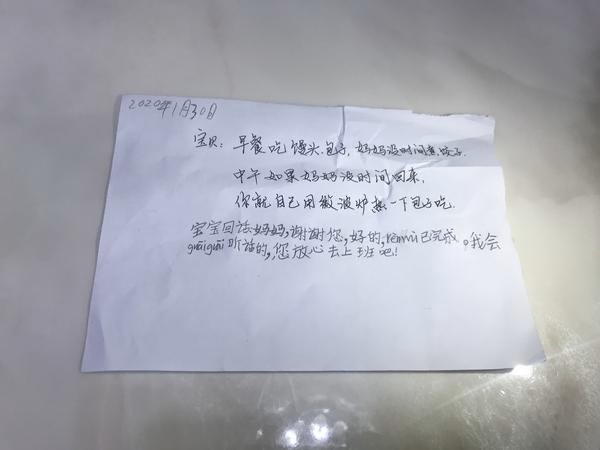 2020年1月30日
宝贝：早餐吃馒头.包子，妈妈没时间煮饺子.
中午如果妈妈没时间回来，
你就自己用微波炉热一下包子吃.
宝宝回话妈妈，谢谢您，好的，rènwù已完成。我会
guāiguāi听话的，您放心去上班吧！